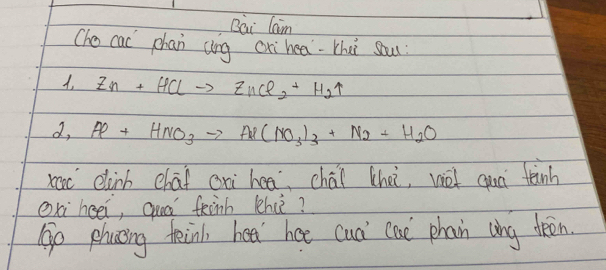 Bài làm
Cho các phản ứng oxi hoá - khử sau:
1, Zn + HCl → ZnCl₂ + H₂↑
2, Al + HNO₃ → Al(NO₃)₃ + N₂ + H₂O
xác định chất oxi hoá, chất khử, viết quá trình
oxi hoá, quá trình khử?
lập phương trình hoá học của các phản ứng trên.